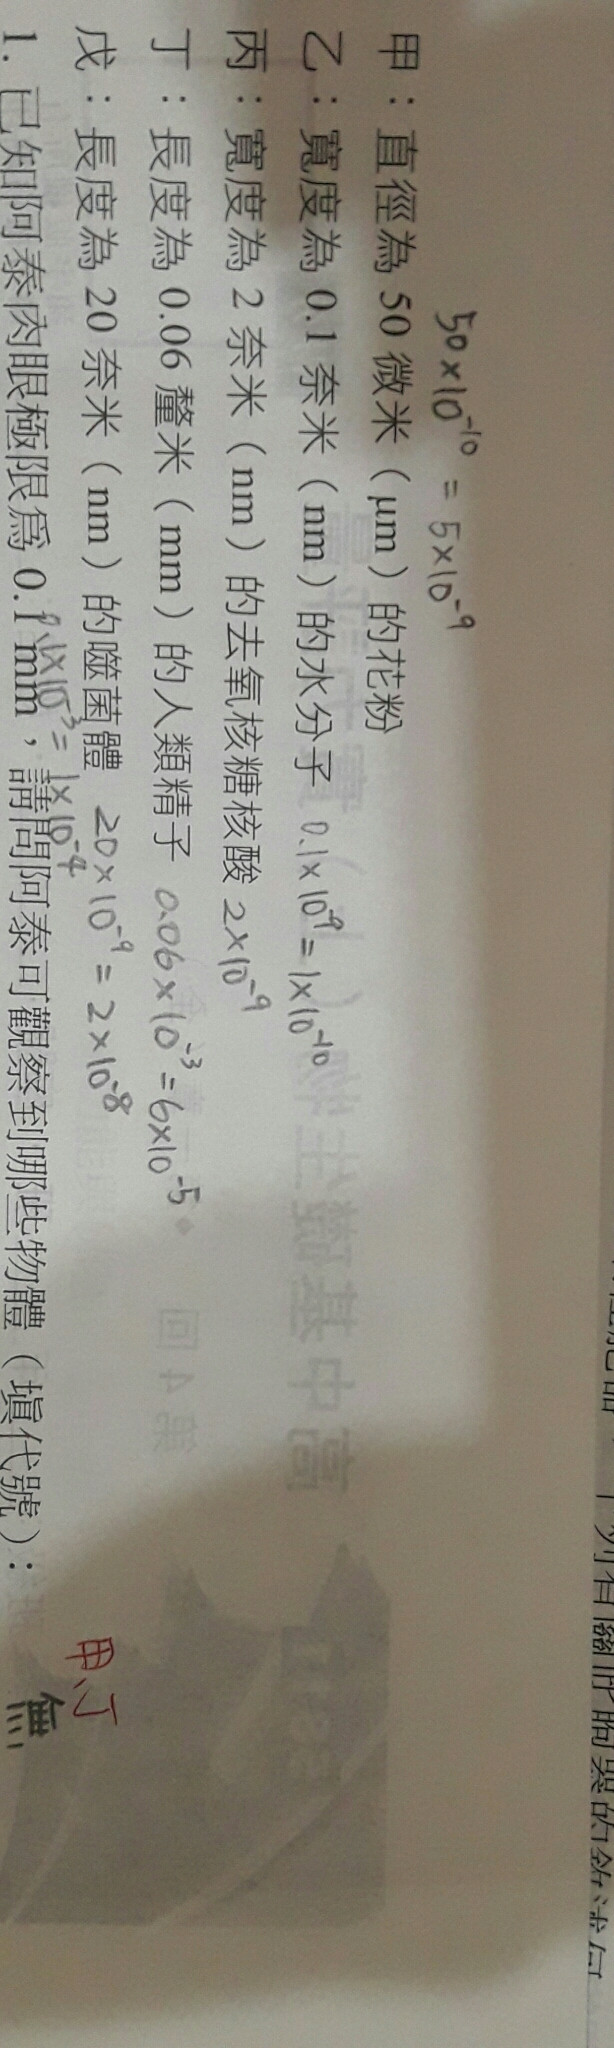 50×10⁻¹⁰ = 5×10⁻⁹
甲：直徑為 50 微米（μm）的花粉
乙：寬度為 0.1 奈米（nm）的水分子 0.1×10⁻⁹ = 1×10⁻¹⁰
丙：寬度為 2 奈米（nm）的去氧核糖核酸 2×10⁻⁹
丁：長度為 0.06 釐米（mm）的人類精子 0.06×10⁻³ = 6×10⁻⁵
戊：長度為 20 奈米（nm）的噬菌體 20×10⁻⁹ = 2×10⁻⁸
0.1×10⁻³ = 1×10⁻⁴
甲、丁
1. 已知阿泰肉眼極限為 0.1 mm，請問阿泰可觀察到哪些物體（填代號）： 無